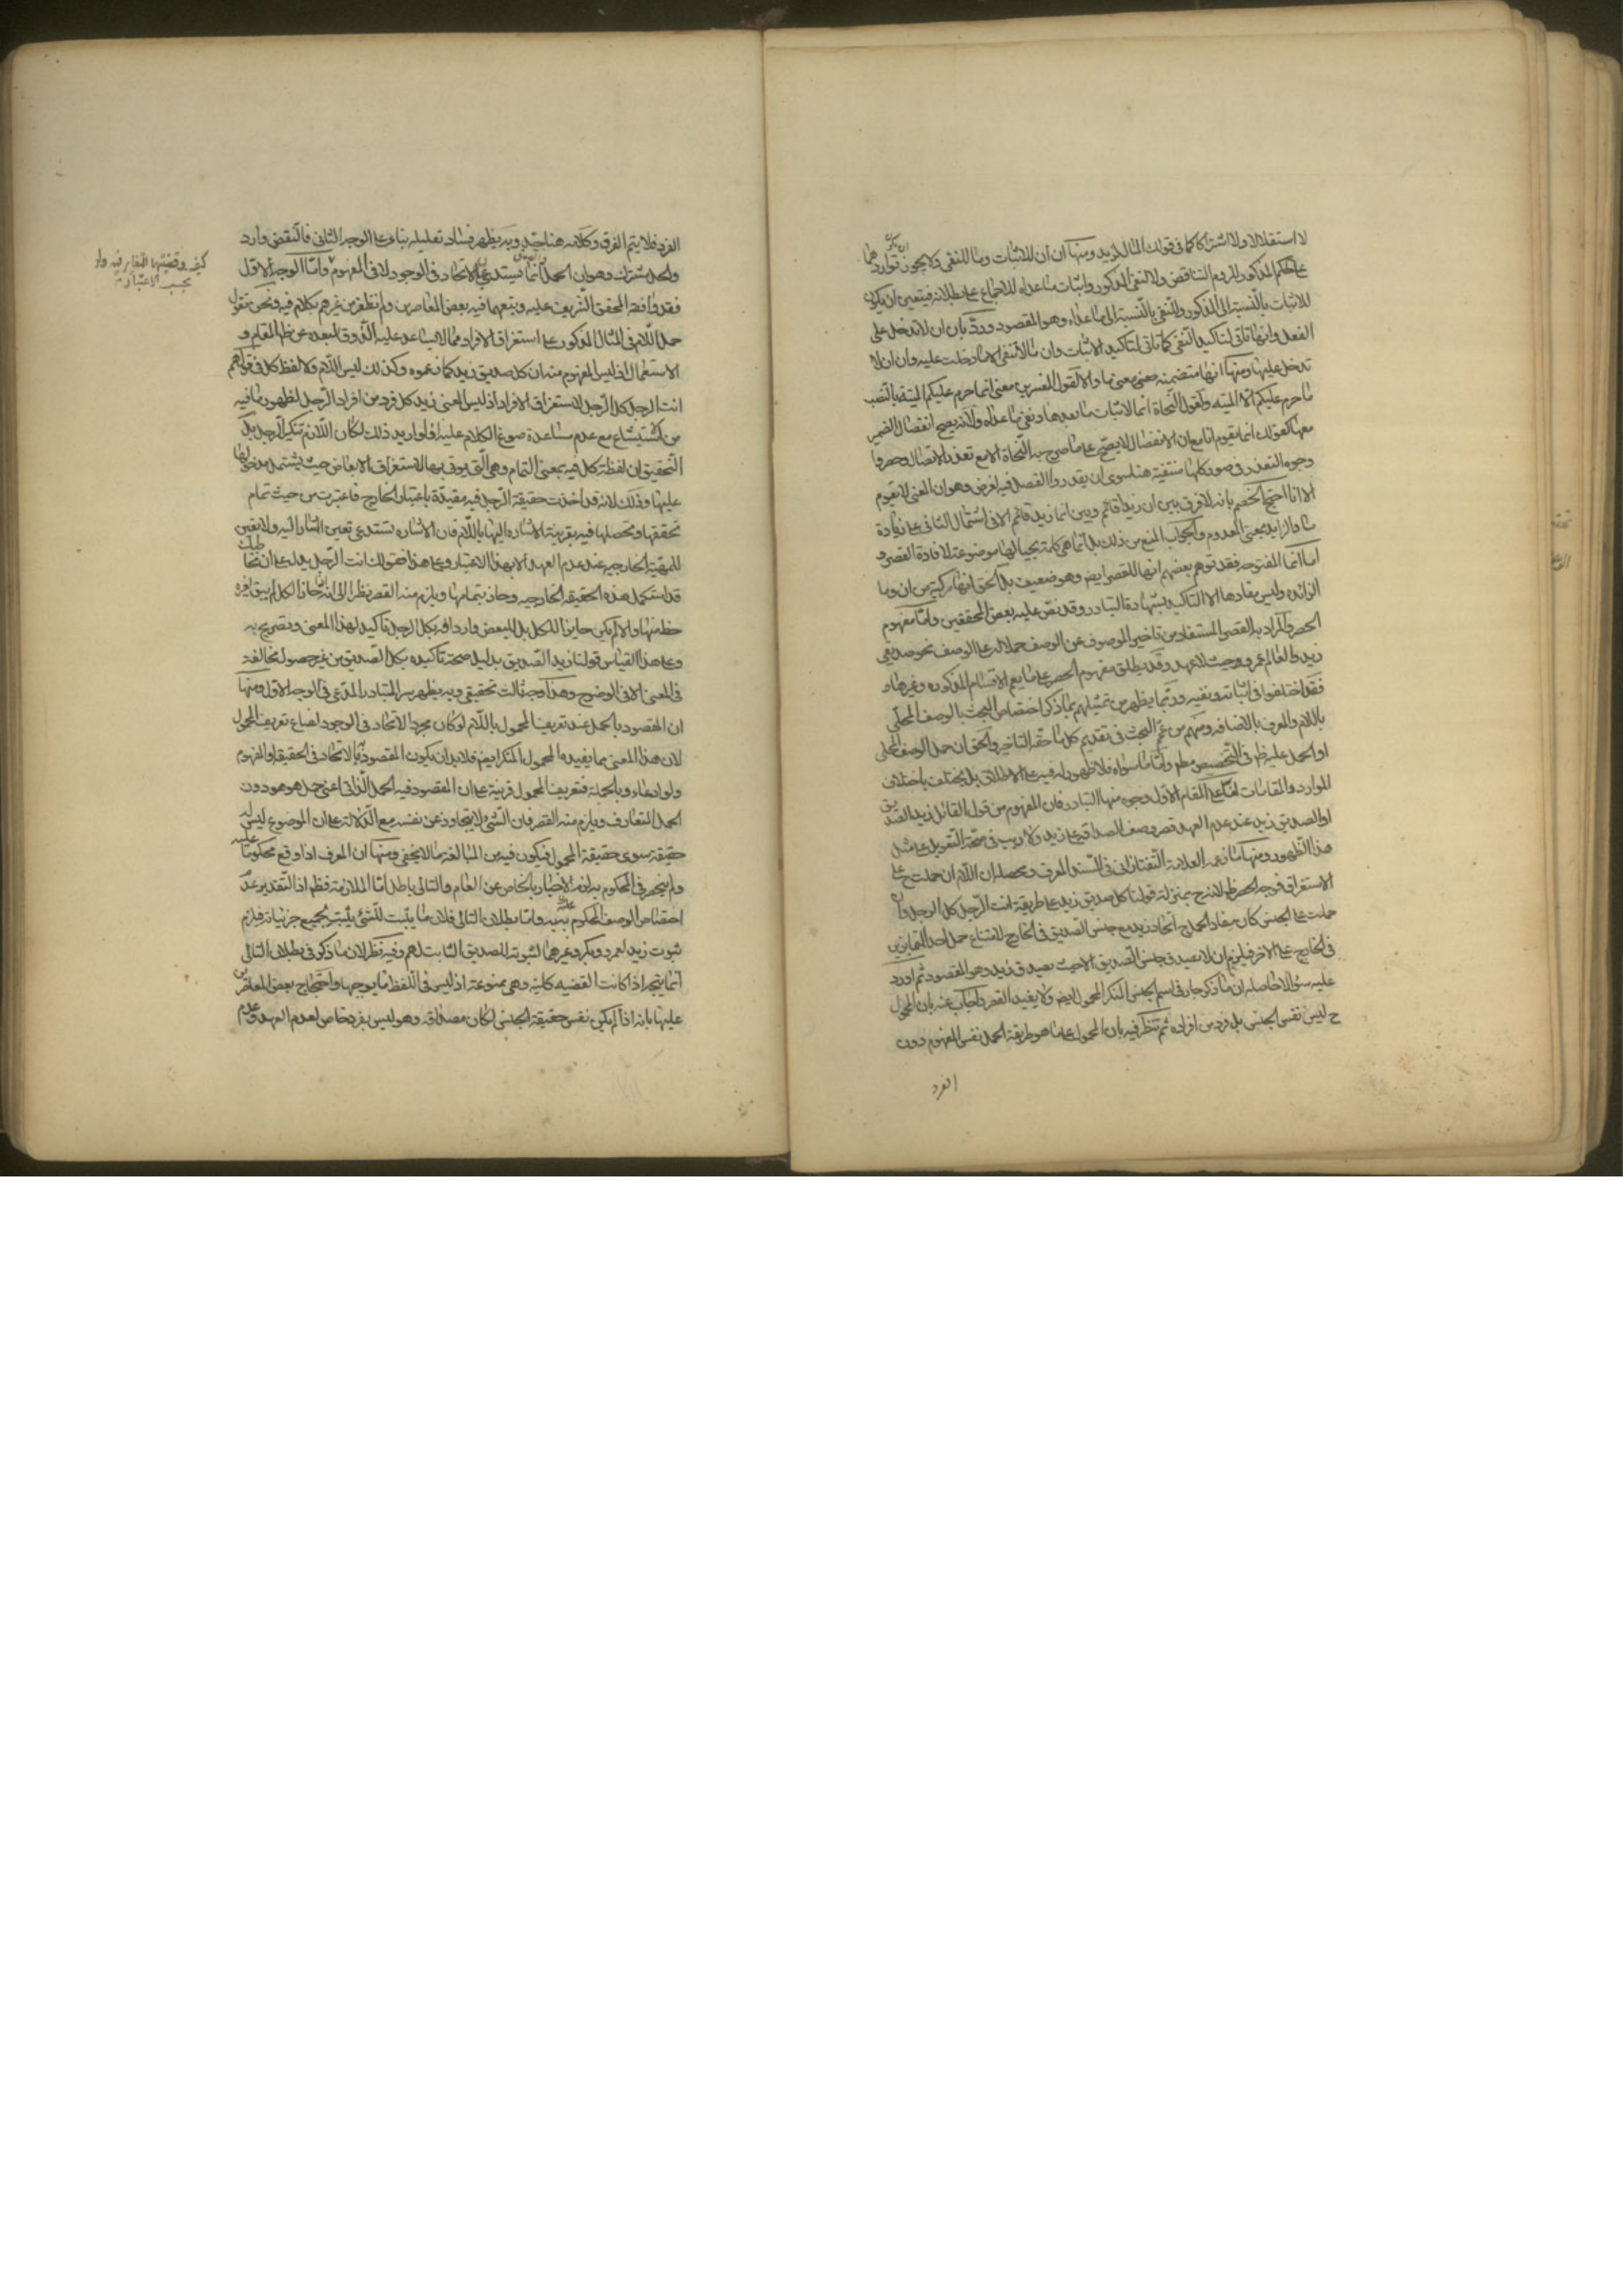 لا استقلالا ولا اشتراكا كما في قولك المال لزيد ومنها ان ان للاثبات وما للنفي ولا يجوز ان يكون تواردهما
على الحكم المذكور للزوم التناقض ولا النفي المذكور واثبات ما عداه للاجماع على بطلانه فيتعين ان يكون
للاثبات بالنسبة الى المذكور والنفي بالنسبة الى ما عداه وهو المقصود ورد بان ان لا تدخل على
الفعل وانها تاتي لتاكيد النفي كما تاتي لتاكيد الاثبات وان ما لا تنفي الا ما دخلت عليه وان ان لا
تدخل عليها ومنها انها متضمنه معنى ما والا لقول المفسرين معنى انما حرم عليكم الميتة بالنصب
ما حرم عليكم الا الميته ولقول النحاة انما لاثبات ما بعدها ونفي ما عداه ولانه يصح انفصال الضمير
معها كقولك انما يقوم انا مع ان الانفصال لا يصح على ما صرح به النحاة الا مع تعذر الاتصال وحصروا
وجوه التعذر في صور كلها منتفية هنا سوى ان يقدروا الفصل فيه لغرض وهو ان المعنى لا يقوم
الا انا احتج الخصم بانه لا فرق بين ان زيدا قائم وبين انما زيد قائم الا في اشتمال الثاني على زيادة
ما والزايد بمعنى المعدوم والجواب المنع من ذلك بل انما هي كلمة بحيالها موضوعة لافادة القصر و
اما انما المفتوحه فقد توهم بعضهم انها للقصر ايض وهو ضعيف بل الحق انها مركبة من ان وما
الزائده وليس مفادها الا التاكيد بشهادة التبادر وقد نص عليه بعض المحققين واما مفهوم
الحصر والمراد به القصر المستفاد من تاخير الموصوف عن الوصف حملا له على الوصف نحو صديقي
زيد والعالم عمرو حيث لا عهد وقد يطلق مفهوم الحصر على ما يعم الاقسام المذكوره وغيرها و
فقد اختلفوا في اثباته ونفيه وربما يظهر من تمثيلهم بما ذكر اختصاص البحث بالوصف المحلى
باللام والمعرف بالاضافه ومنهم من عمم البحث في تقديم كل ما حقه التاخير والحق ان حمل الوصف المحلى
او الحمل عليه ظ في التخصيص مط واما ما سواه فلا ظهور له فيه على الاطلاق بل يختلف باختلاف
الموارد والمقامات لنا على المقام الاول وجوه منها التبادر فان المفهوم من قول القائل زيد الصديق
او الصديق زيد عند عدم العهد قصر وصف الصداقه على زيد ولا ريب في صحة التعويل على مثل
هذا الظهور ومنها ما زعمه العلامة التفتازاني في المسند المعرف ومحصله ان اللام ان حملت ح على
الاستغراق فوجه الحصر ظ لانه ح بمنزلة قولنا كل صديق زيد على طريقة انت الرجل كل الرجل وان
حملت على الجنس كان مفاد الحمل ح اتحاد زيد مع جنس الصديق في الخارج لامتناع حمل احد المتمايزين
في الخارج على الاخر فيلزم ان لا يصدق جنس الصديق الا حيث يصدق زيد وهو المقصود ثم اورد
عليه سؤالا حاصله ان ما ذكر جار في اسم الجنس المنكر المحمول ايض ولا يفيد القصر واجاب عنه بان المحمول
ح ليس نفس الجنس بل فرد من افراده ثم تنظر فيه بان المحمول على ما هو طريقة الحمل نفس المفهوم دون
الفرد
الفرد فلا يتم الفرق وكلامه هنا جيد وبه يظهر فساد تعليله بناء على الوجه الثاني فالنقض وارد
والحل مشترك وهو ان الحمل انما يستدعي الاتحاد في الوجود لا في المفهوم واما الوجه الاول
فقد وافقه المحقق الشريف عليه وتبعهما فيه بعض المعاصرين ولم نظفر من غيرهم بكلام فيه ونحن نقول
حمل اللام في المثال المذكور على استغراق الافراد مما لا يساعد عليه الذوق لبعده عن ظ المقام و
الاستعمال اذ ليس المفهوم منه ان كل صديق زيد كما زعموه وكذلك ليس اللام ولا لفظ كل في قولهم
انت الرجل كل الرجل لاستغراق الافراد اذ ليس المعنى زيد كل فرد من افراد الرجل لظهور ما فيه
من الاستبشاع مع عدم مساعدة صوغ الكلام عليه فلو اريد ذلك لكان اللازم تنكير الرجل بل
التحقيق ان لفظة كل فيه بمعنى التمام وهي التي يوتى بها لاستغراق الابعاض حيث يشتمل مدخولها
عليها وذلك لانه قد اخذت حقيقة الرجل فيه مقيدة باعتبار الخارج فاعتبرت من حيث تمام
تحققها وتحصلها فيه بقرينة الاشاره اليها باللام فان الاشاره تستدعي تعين المشار اليه ولا تعين
للمهية الخارجيه عند عدم العهد الا بهذا الاعتبار وعلى هذا فقولك انت الرجل يدل على ان مخاطبك
قد استكمل هذه الحقيقه الخارجيه وحاز بتمامها ويلزم منه القصر نظرا الى انه اذا حاز الكل لم يبق لغيره
حظ منها والا لم يكن حايزا للكل بل للبعض واردافه بكل الرجل تاكيد لهذا المعنى وتصريح به
وعلى هذا القياس قولنا زيد الصديق بدليل صحة تاكيده بكل الصديق من غير حصول مخالفة
في المعنى الا في الوضوح وهذا وجه ثالث تحقيقي وبه يظهر سر التبادر المدعى في الوجه الاول ومنها
ان المقصود بالحمل عند تعريف المحمول باللام لو كان مجرد الاتحاد في الوجود لضاع تعريف المحمول
لان هذا المعنى مما يفيده المحمول المنكر ايض فلا بد ان يكون المقصود به الاتحاد في الحقيقه او المفهوم
ولو ادعاء وبالجملة فتعريف المحمول قرينة على ان المقصود فيه الحمل الذاتي اعني حمل هو هو دون
الحمل المتعارف ويلزم منه القصر فان الشئ لا يتجاوز عن نفسه مع الدلالة على ان الموضوع ليس له
حقيقة سوى حقيقة المحمول فيكون فيه من المبالغة ما لا يخفى ومنها ان المعرف اذا وقع محكوما عليه
ولم ينحصر في المحكوم به لزم الاخبار بالخاص عن العام والتالي باطل اما الملازمة فظ اذ التقدير عدم
اختصاص الوصف المحكوم عليه به واما بطلان التالي فلان ما يثبت للشئ يثبت لجميع جزئياته فيلزم
ثبوت زيد لعمرو وبكر وغيرهما لثبوته للصديق الثابت لهم وفيه نظر لان ما ذكر في بطلان التالي
انما يتجه اذا كانت القضيه كلية وهي ممنوعة اذ ليس في اللفظ ما يوجبها واحتجاج بعض المعاصرين
عليها بانه اذا لم يكن نفس حقيقة الجنس لكان مصداقه وهو ليس بفرد خاص لعدم العهد وعدم
كيف وقضيتها التغاير فيه ولو
بحسب الاعتبار